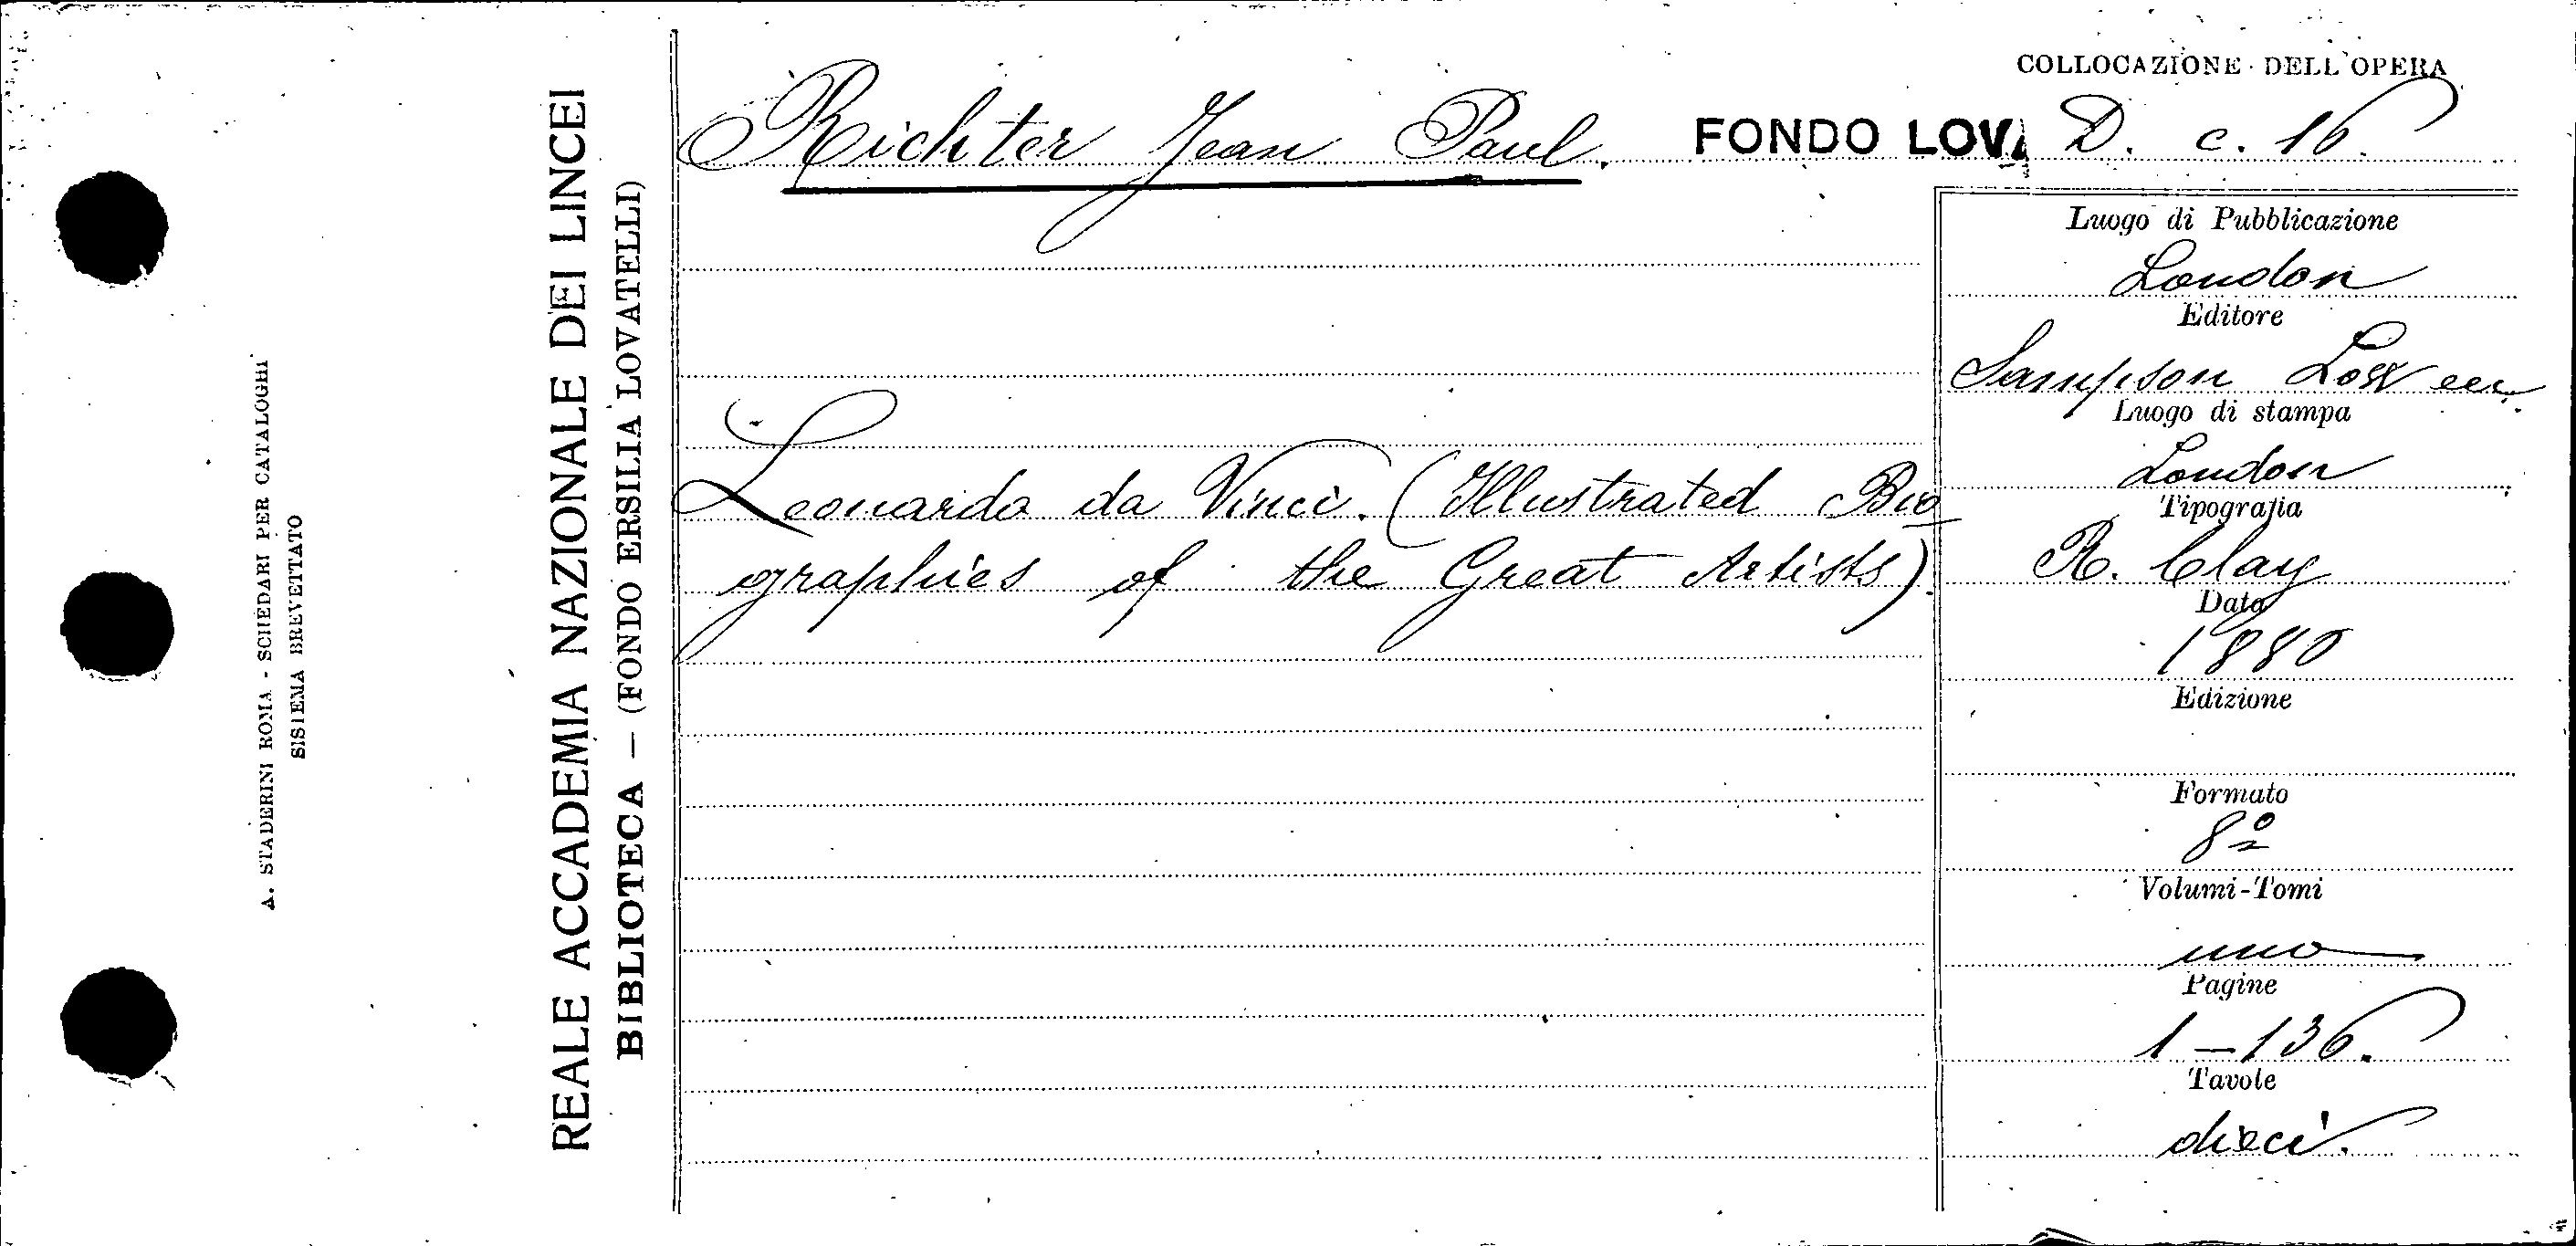 COLLOCAZIONE DELL'OPERA
Richter Jean Paul. FONDO LOVA D. c. 16.
Leonardo da Vinci. (Illustrated Bio
graphies of the Great Artists).
Luogo di Pubblicazione
London
Editore
Sampson Low ecc.
Luogo di stampa
London
Tipografia
R. Clay
Data
1880
Edizione
Formato
8º
Volumi-Tomi
uno
Pagine
1-136.
Tavole
dieci.
REALE ACCADEMIA NAZIONALE DEI LINCEI
BIBLIOTECA — (FONDO ERSILIA LOVATELLI)
A. STADERINI ROMA - SCHEDARI PER CATALOGHI
SISTEMA BREVETTATO